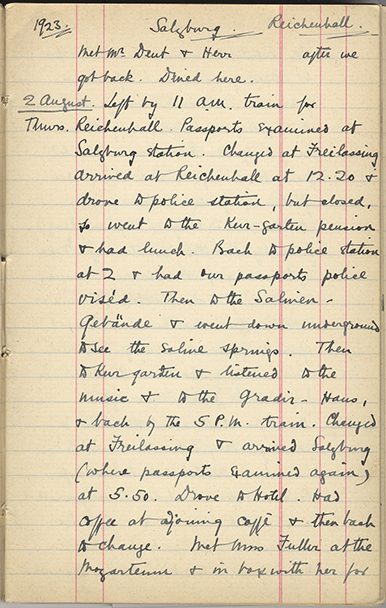 1923. Salzburg. Reichenhall.
Met Mr Dent & Herr after we
got back. Dined here.
2 August. Left by 11 A.M. train for
Thurs. Reichenhall. Passports examined at
Salzburg station. Changed at Freilassing
arrived at Reichenhall at 12.20 &
drove to police station, but closed,
so went to the Kur-garten pension
& had lunch. Back to police station
at 2 & had our passports police
viséd. Then to the Salinen-
Gebände & went down underground
to see the saline springs. Then
to Kur garten & listened to the
music & to the Gradir-Haus,
& back by the 5 P.M. train. Changed
at Freilassing & arrived Salzburg
(where passports examined again)
at 5.50. Drove to Hotel. Had
coffee at ajoining caffè & then back
to change. Met Miss Fuller at the
Mozarteum & in box with her for